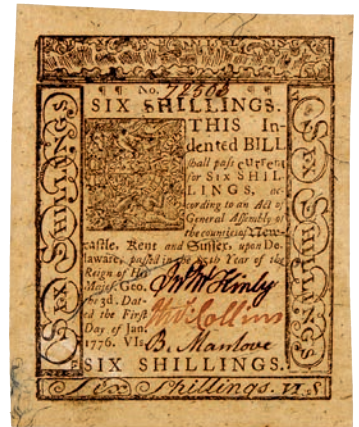 No. 72503
SIX SHILLINGS.
THIS In-
dented BILL
shall pass current
for SIX SHIL-
LINGS, ac-
cording to an Act of
General Assembly of
the counties of New-
castle, Kent and Sussex, upon De-
laware, passed in the 15th Year of the
Reign of His
Majes. Geo.
the 3d. Dat-
ed the First
Day of Jan.
1776. VIs.
Jno McKinly
Thos Collins
B. Manlove
SIX SHILLINGS.
Six Shillings. VI.S
SIX SHILLINGS
SIX SHILLINGS